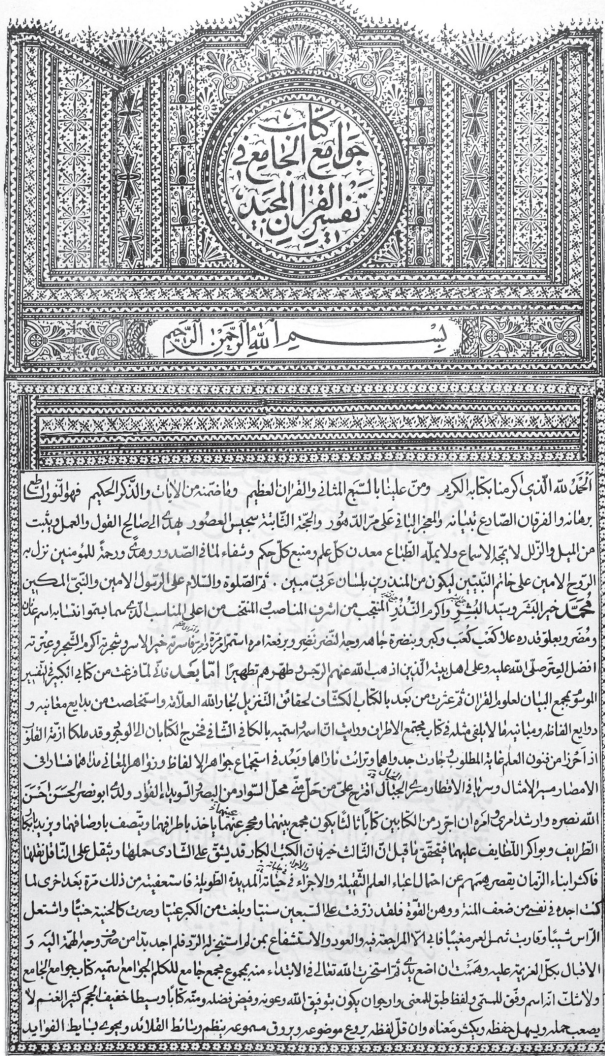 كتاب
جوامع الجامع في
تفسير القران المجيد
بسم الله الرحمن الرحيم
الحمد لله الذي اكرمنا بكتابه الكريم ومن علينا بالسبع المثاني والقران العظيم وما ضمنه من الايات والذكر الحكيم فهو النور الساطع
برهانه والفرقان الصادع تبيانه والمعجز الباقي على مر الدهور والحجة الثابتة سجيس العصور هدى الى صالح القول والعمل يثبت
من الميل والزلل لا تمجه الاسماع ولا يمله الطباع معدن كل علم ومنبع كل حكم وشفاء لما في الصدور وهدى ورحمة للمؤمنين نزل به
الروح الامين على خاتم النبيين ليكون من المنذرين بلسان عربي مبين ثم الصلوة والسلام على الرسول الامين والنبي المكين
محمد خير البشر وسيد البشر واكرم النذر المنتجب من اشرف المناصب المنتخب من اعلى المناسب الذي سما بسموا انتسابه اسم عدنان
ومضر وبعلو قدره علا كعب كعب وكبر وبنضرة جاهه وجه النضر نضر وبرفعة امره استمر امرة خير الاسر وشجرته اكرم الشجر وعترته
افضل العتر صلى الله عليه وعلى اهل بيته الذين اذهب الله عنهم الرجس وطهرهم تطهيرا اما بعد فاني لما فرغت من كتابي الكبير في التفسير
الموسوم بمجمع البيان لعلوم القران ثم عثرت من بعد بالكتاب الكشاف لحقائق التنزيل لجار الله العلامة واستخلصت من بدايع معانيه و
روايع الفاظه ومبانيه ما لا يلفى مثله في كتاب مجتمع الاطراف ورايت ان اسمه واسميه بالكافي الشافي فخرج الكتابان الى الوجود وقد ملكا ازمة القلوب
اذ احرزا من فنون العلم غاية المطلوب وجادت جدواهما وتراءت ناراهما وبعد في استجماع جواهر الالفاظ وزواهر المعاني مداهما فسارا في
الامصار مسير الامثال وسريا في الاقطار مسرى الخيال اقترح علي من حل مني محل السواد من البصر السويداء الفؤاد ولدي ابو نصر الحسن احسن
الله نصره وارشد امري وامره ان اجرد من الكتابين كتابا ثالثا يكون مجمع بينهما ومحجر عينهما ياخذ باطرافهما ويتصف باوصافهما ويزيد بابكار
الطرايف وبواكر اللطايف عليهما فيتحقق ما قيل ان الثالث خير فان الكتب الكبار قد يشق على الشادي حملها ويثقل على الناقل نقلها
فاكثر ابناء الزمان يقصر هممهم عن احتمال اعباء العلم الثقيلة والاجراء في حلباته المديدة الطويلة فاستعفيته من ذلك مرة بعد اخرى لما
كنت اجده في نفسي من ضعف المنة ووهن القوة فلقد ذرفت على السبعين سنيا وبلغت من الكبر عتيا وصرت كالحنية حنيا واشتعل
الراس شيبا وقاربت شمس العمر مغيبا فابى الا المراجعة فيه والعود والاستشفاع بمن لم استجز له الرد فلم اجد بدا من صرف وجه الهمة اليه و
الاقبال بكل العزيمة عليه وهممت ان اضع يدي ثم استخرت الله تعالى في الابتداء منه بمجموع مجمع جامع للكلم الجوامع اسميه كتاب جوامع الجامع
ولا شك انه اسم وفق للمسمى ولفظ طبق للمعنى وارجو ان يكون بتوفيق الله وعونه وفيض فضله ومنه كتابا وسيطا خفيف الحجم كثير الغنم لا
يصعب حمله ويسهل حفظه ويكثر معناه وان قل لفظه يروع موضوعه ويروق مسموعه ينظم وسائط القلائد ويحوي بسايط الفوايد